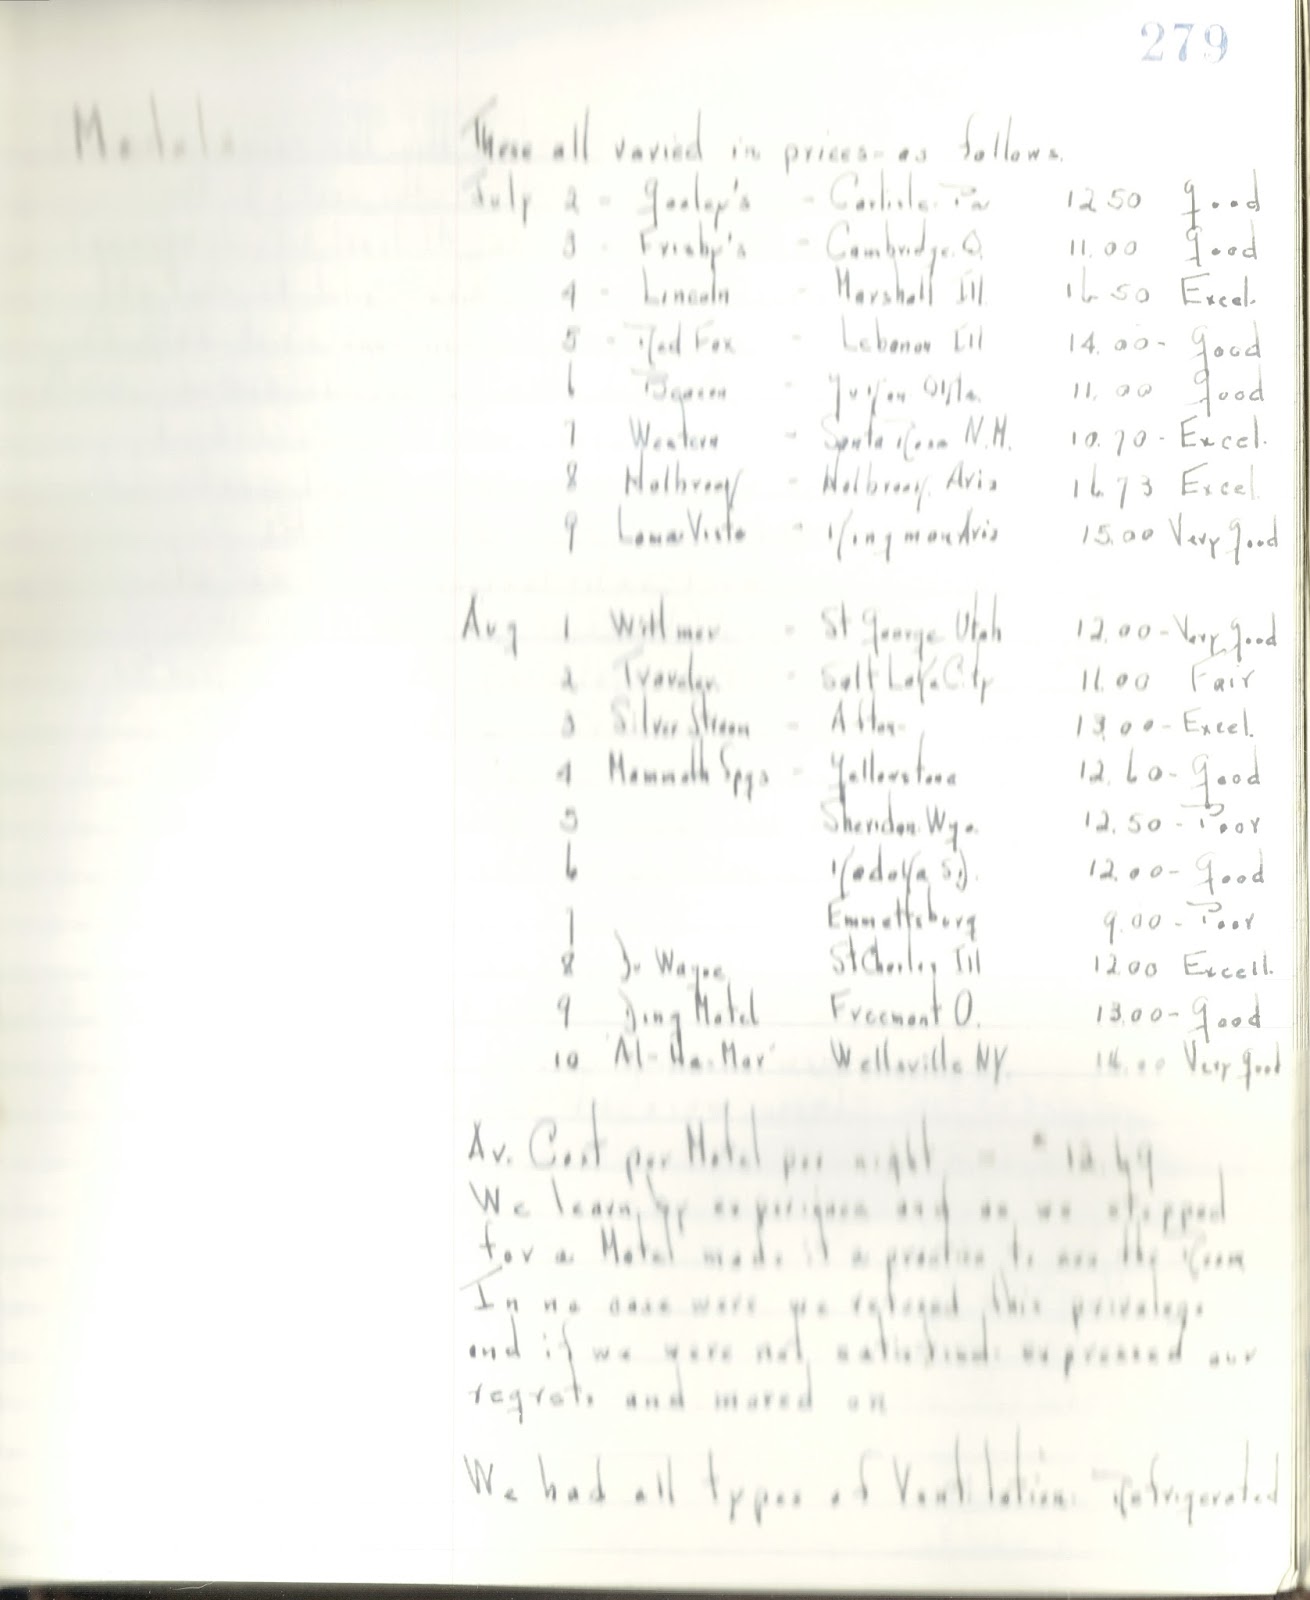 279
Motels
These all varied in prices - as follows.
July 2 - Gooley's - Carlisle. Pa 12 50 Good
3 - Frisby's - Cambridge. O. 11.00 Good
4 - Lincoln - Marshall Ill. 16 50 Excel.
5 - Red Fox - Lebanon Ill 14.00 - Good
6 Beacon - Yukon Okla. 11.00 Good
7 Western - Santa Rosa N.M. 10.70 - Excel.
8 Holbrook - Holbrook. Ariz 16.73 Excel.
9 Loma Vista - Kingman Ariz 15.00 Very Good
Aug 1 Wittmer - St George Utah 12.00 - Very Good
2 Travelon - Salt Lake City 11.00 Fair
3 Silver Stream - Afton - 13.00 - Excel.
4 Mammoth Spgs - Yellowstone 12.60 - Good
5 Sheridan Wyo. 12.50 - Poor
6 Kadoka S.D. 12.00 - Good
7 Emmettsburg 9.00 - Poor
8 Du Wayne St Charles Ill 12 00 Excell.
9 Ding Motel Freemont O. 13.00 - Good
10 "Al-Ha-Mar" Wellsville NY. 14.00 Very good
Av. Cost per Motel per night = $12.69
We learn by experience and as we stopped
for a Motel made it a practice to see the Room
In no case were we refused this privalege
and if we were not satisfied: expressed our
regrets and moved on
We had all types of Ventilation: Refrigerated